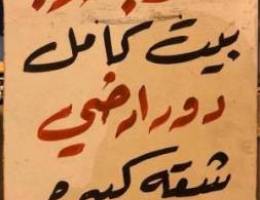 بيت كامل
دور ارضي
شقه كبيره